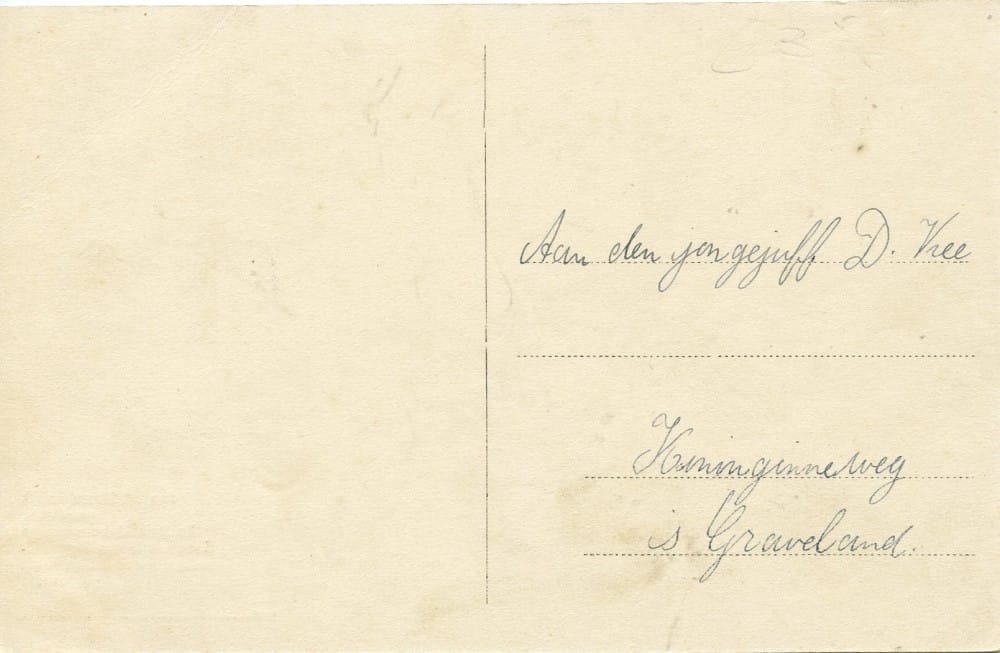 Aan den jongejuff D. Vree
Koninginneweg
is Graveland.